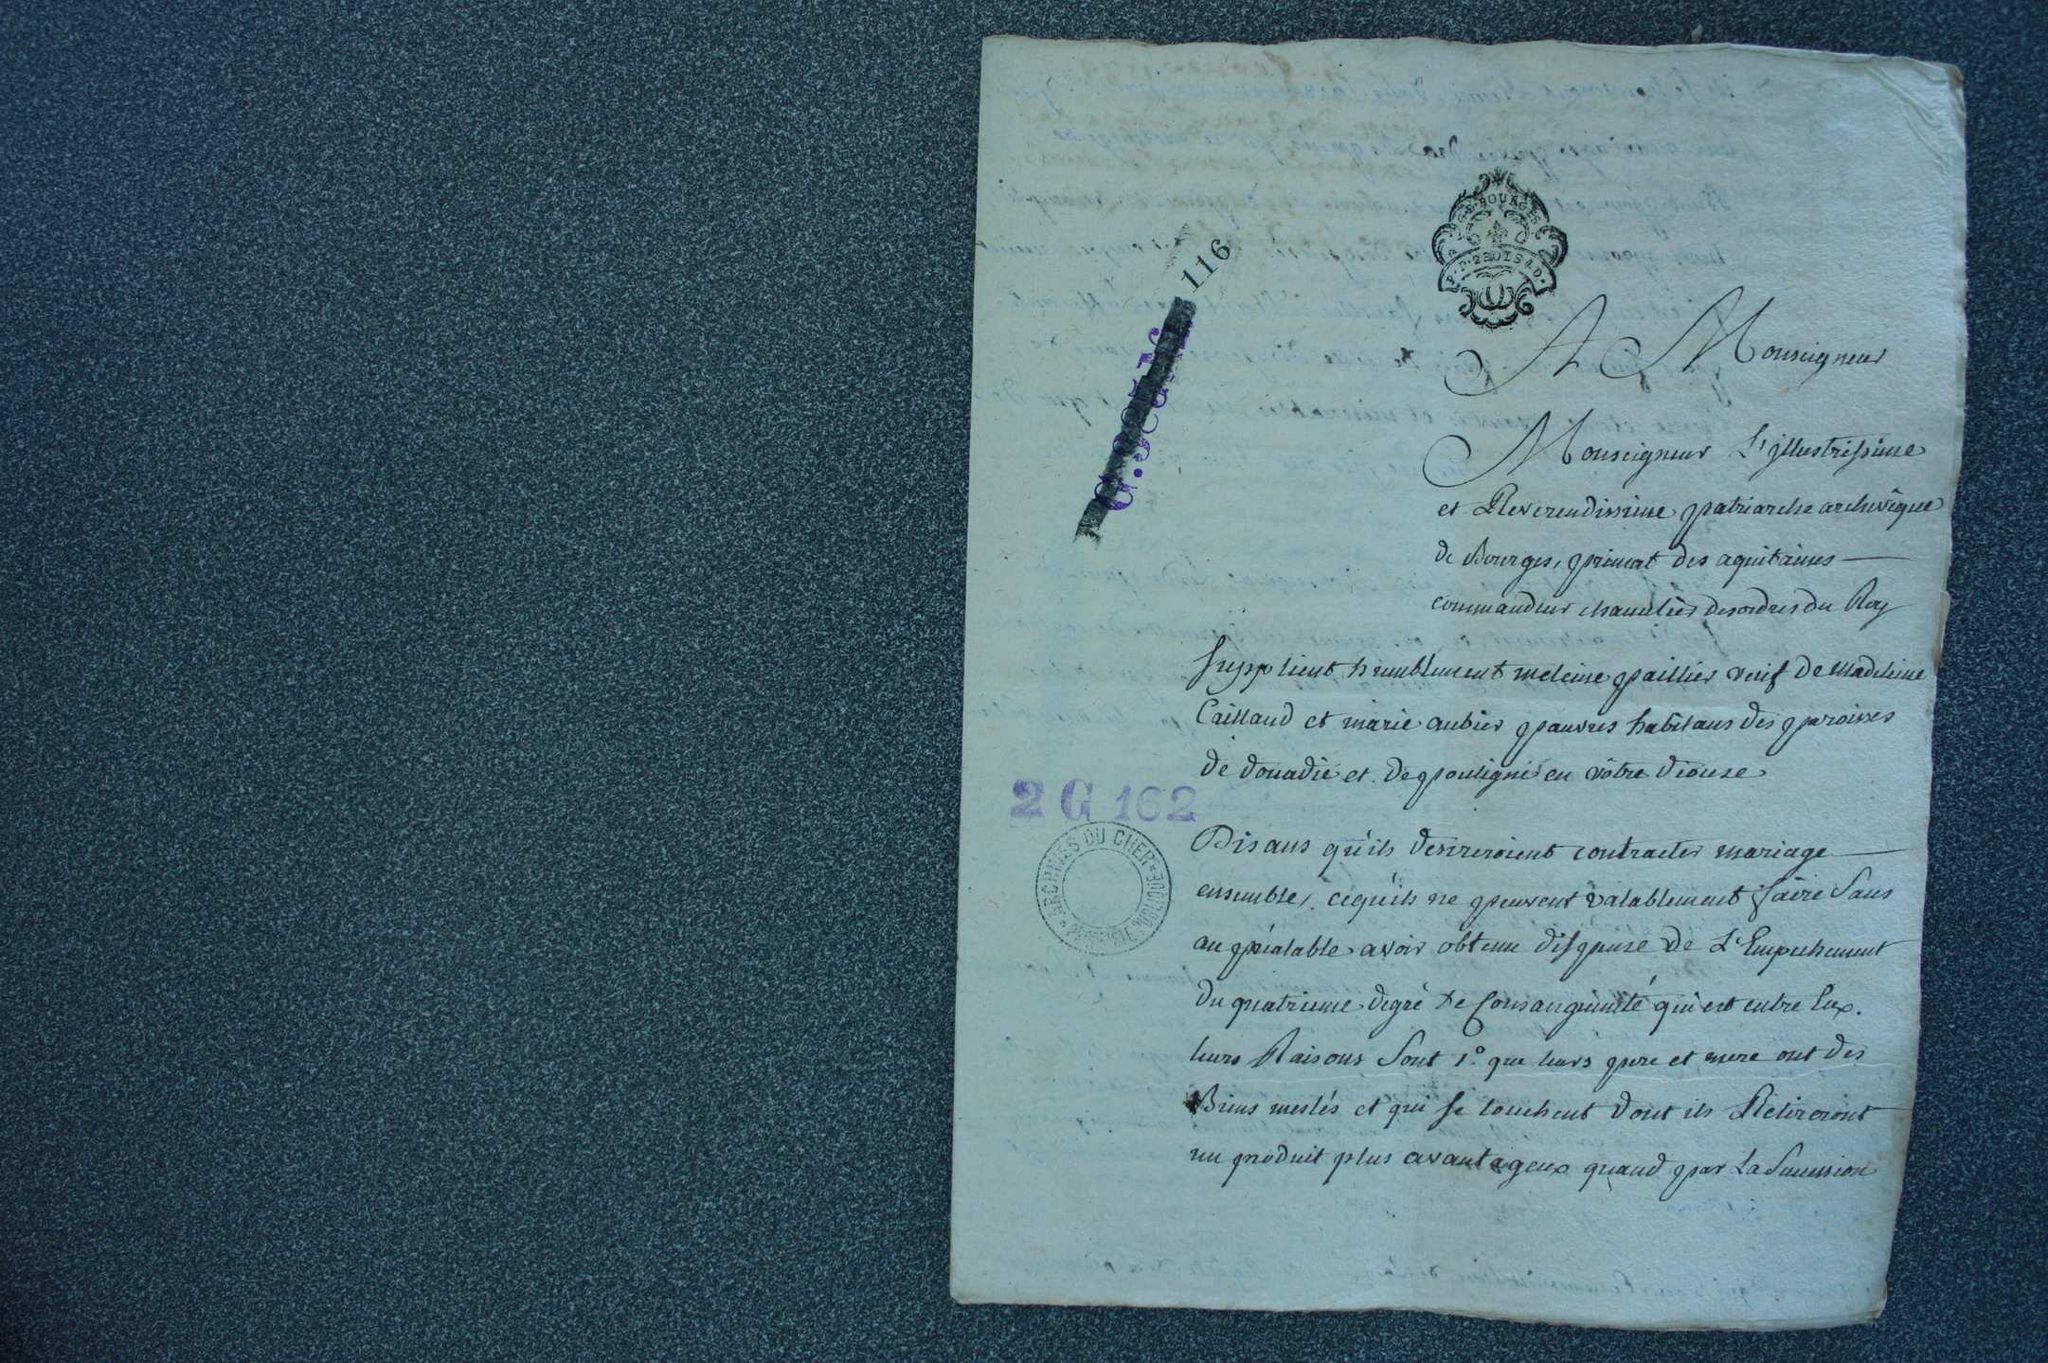 G. BOURGES
P. P. 2 SOLS 4 D.
116
A Monseigneur
Monseigneur L'jllustrissime
et Reverendissime patriarche archevêque
de Bourges, primat des aquitaines
commandeur chancelier des ordres du Roy
Supplient humblement meleine paillier veuf de Madeleine
Caillaud et marie aubier pauvres habitans des paroisses
de douadic et de pouligni en vôtre diocese
2 G 162
ARCHIVES DU CHER
Disans qu'ils desireroient contracter mariage
ensemble, cequ'ils ne peuvent valablement faire Sans
au préalable avoir obtenu dispense de L'Empechement
du quatrieme degré de Consanguinité qui est entre Eux.
leurs Raisons Sont 1.° que leurs pere et mere ont des
Biens meslés et qui se touchent dont ils Retireront
un produit plus avantageux quand par La Sucession